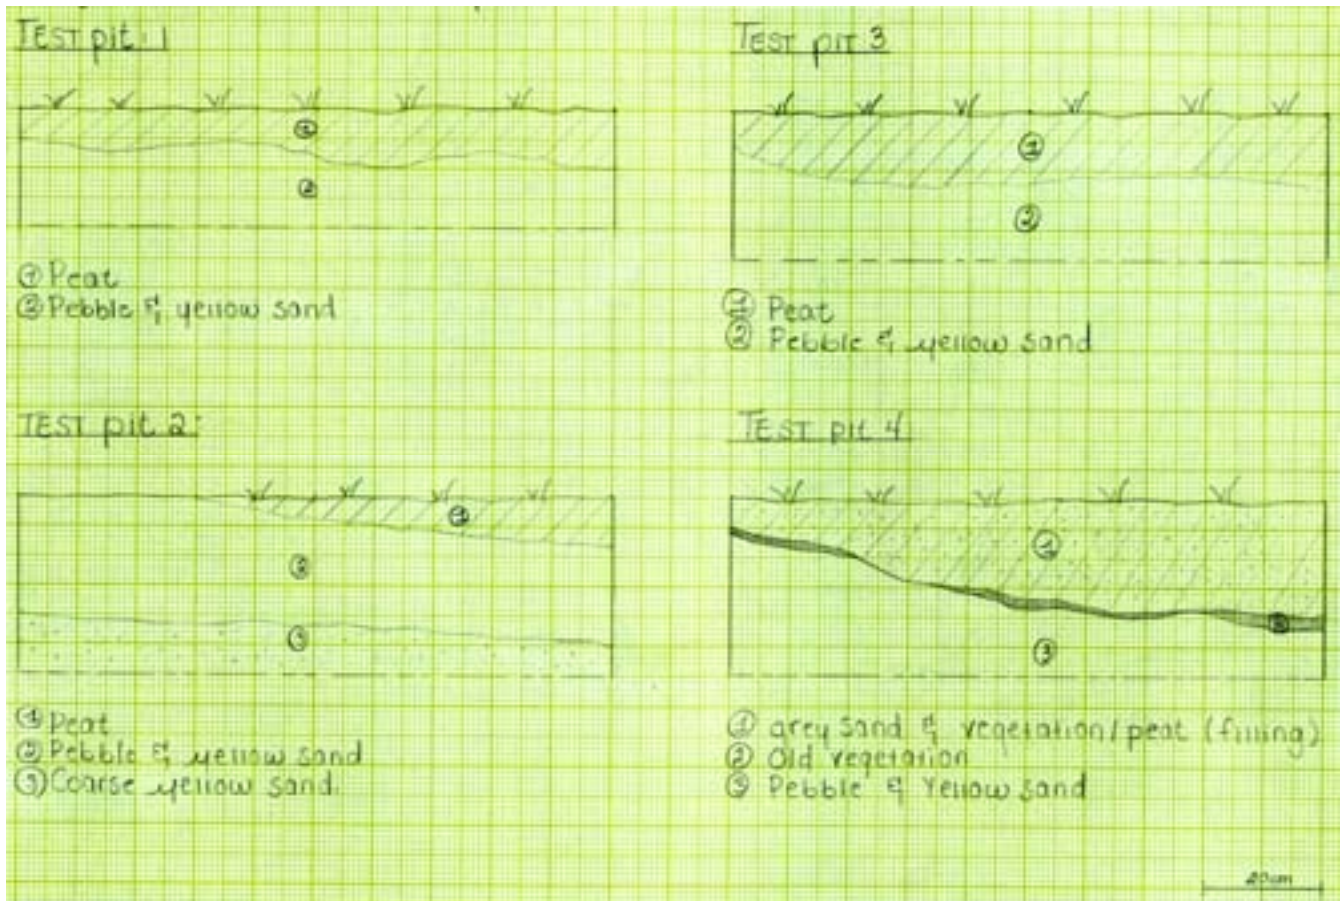 TEST pit 1
①
②
① Peat
② Pebble & yellow sand
TEST pit 2:
①
②
③
① Peat
② Pebble & yellow sand
③ Coarse yellow sand.
TEST pit 3
①
②
① Peat
② Pebble & yellow sand
TEST pit 4
①
②
③
① grey sand & vegetation/peat (filling)
② Old vegetation
③ Pebble & Yellow sand
20cm